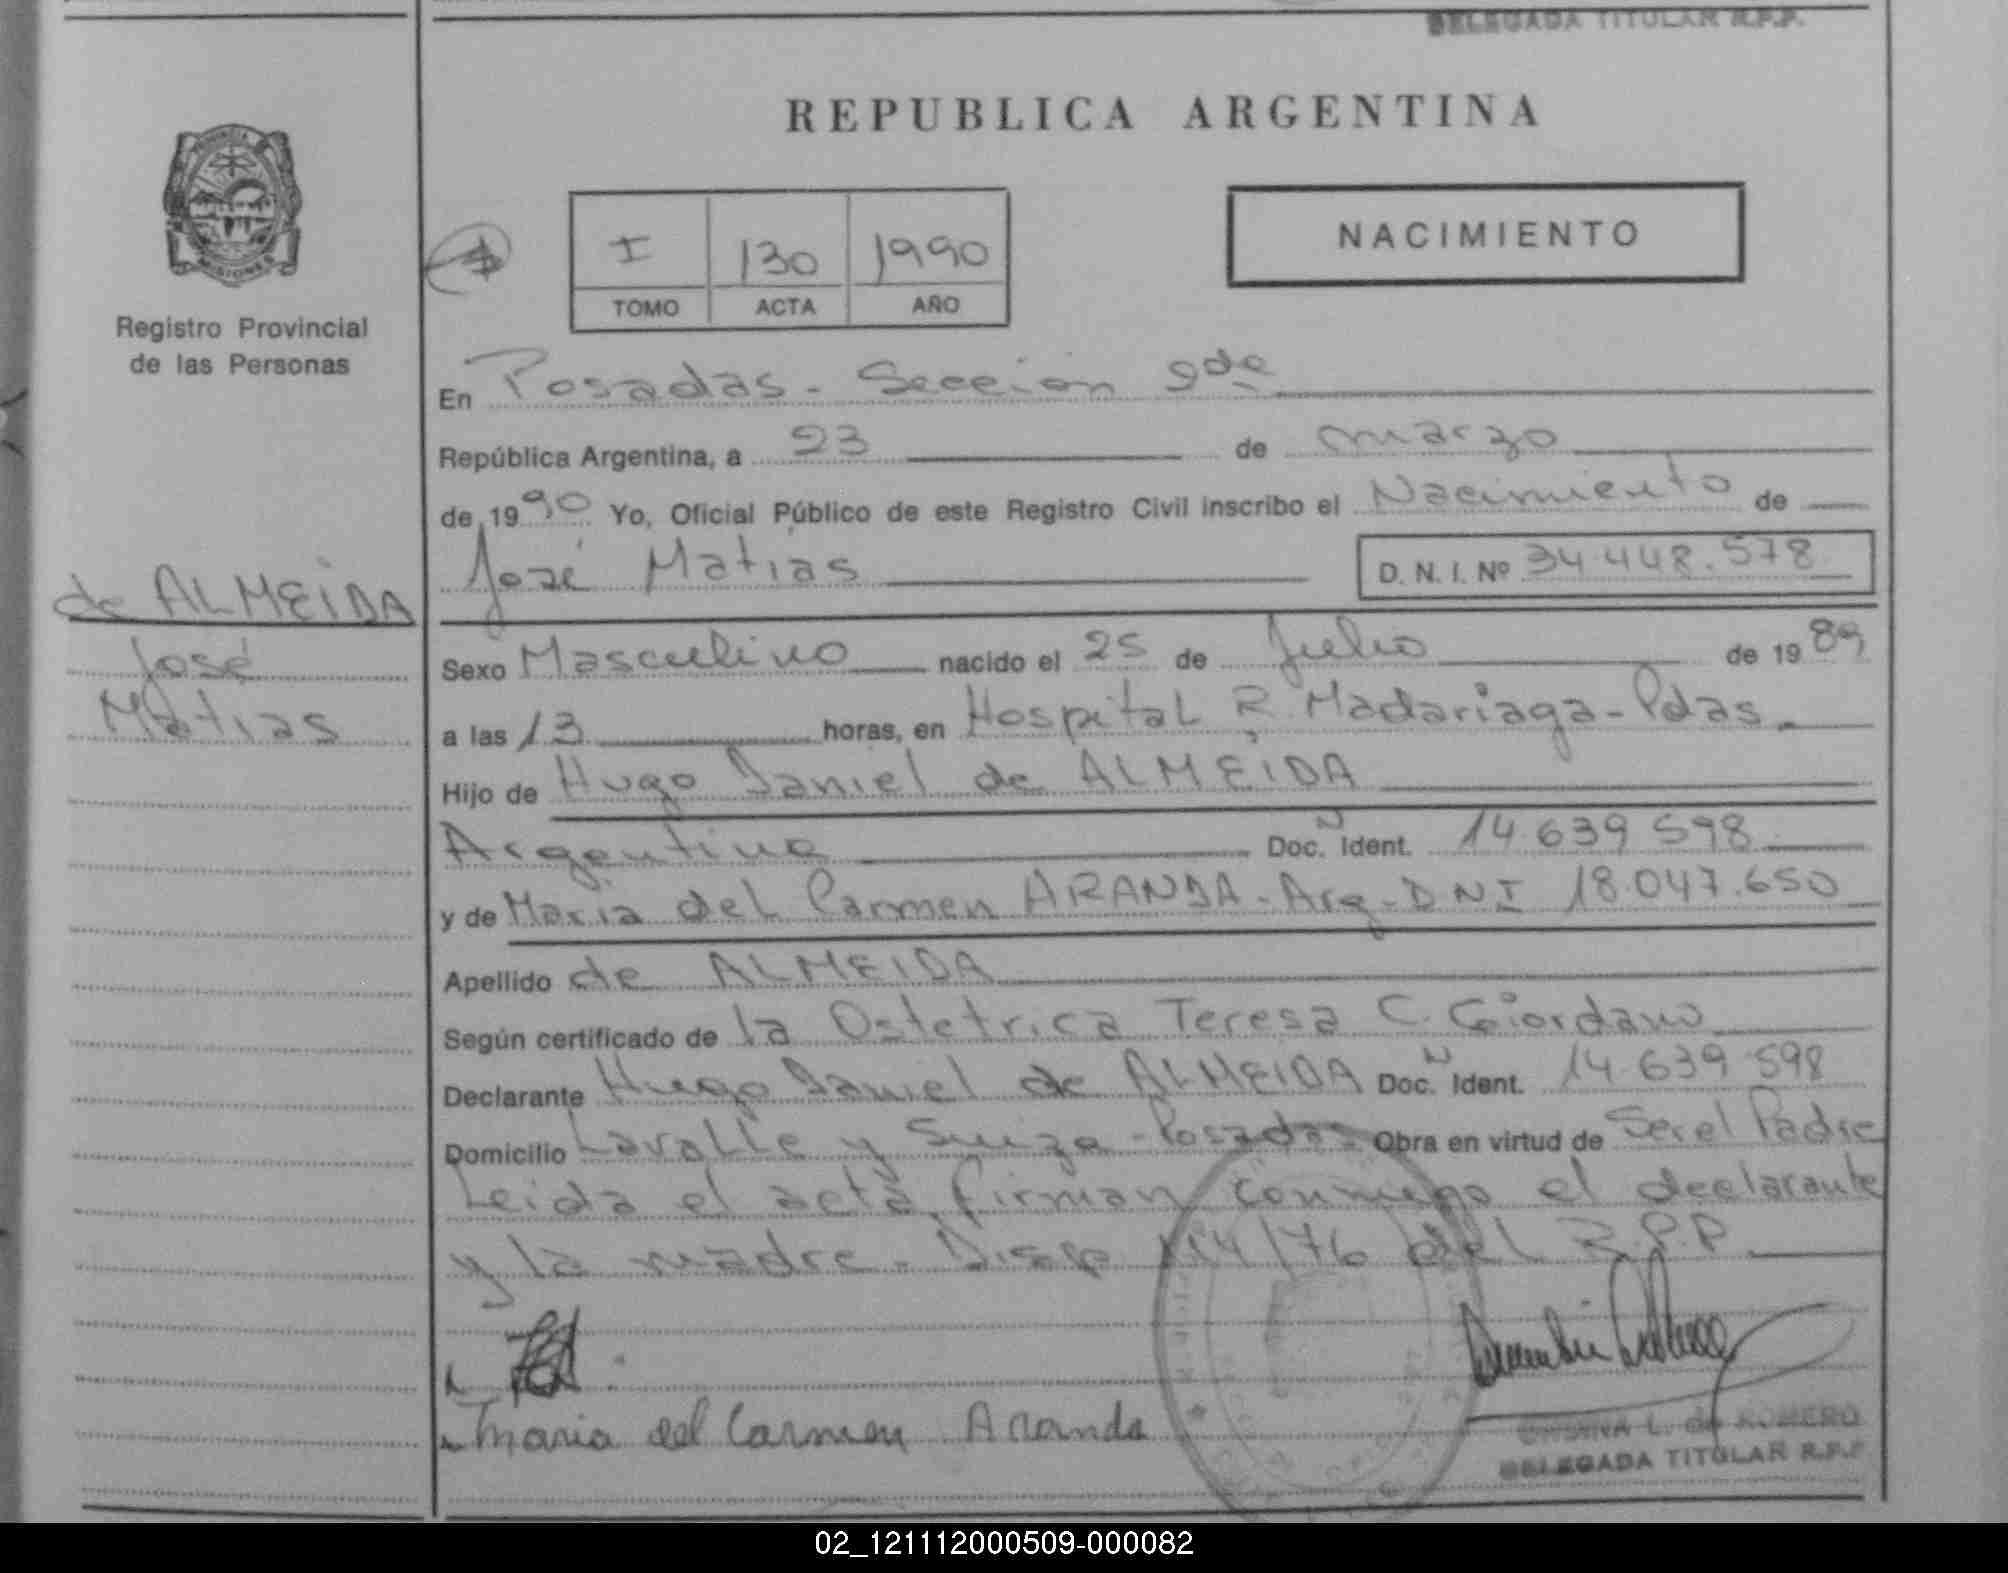 DELEGADA TITULAR R.P.P.
REPUBLICA ARGENTINA
PROVINCIA
MISIONES
Registro Provincial
de las Personas
I 130 1990
TOMO ACTA AÑO
NACIMIENTO
En Posadas - Sección 2da
República Argentina, a 23 de marzo
de 1990 Yo, Oficial Público de este Registro Civil inscribo el Nacimiento de
José Matias
D. N. I. Nº 34.448.578
de ALMEIDA
José
Matias
Sexo Masculino nacido el 25 de Julio de 1989
a las 13 horas, en Hospital R. Madariaga - Pdas.
Hijo de Hugo Daniel de ALMEIDA
Argentino Doc. Ident. 14.639.598
y de Maria del Carmen ARANDA - Arg - DNI 18.047.650
Apellido de ALMEIDA
Según certificado de la Ostetrica Teresa C. Giordano
Declarante Hugo Daniel de ALMEIDA Doc. Ident. 14.639.598
Domicilio Lavalle y Suiza - Posadas Obra en virtud de Ser el Padre
Leida el acta, firman conmigo el declarante
y la madre. Disp 114/76 del R.P.P.
Maria del Carmen Aranda
L. de ROMERO
DELEGADA TITULAR R.P.P
02_121112000509-000082